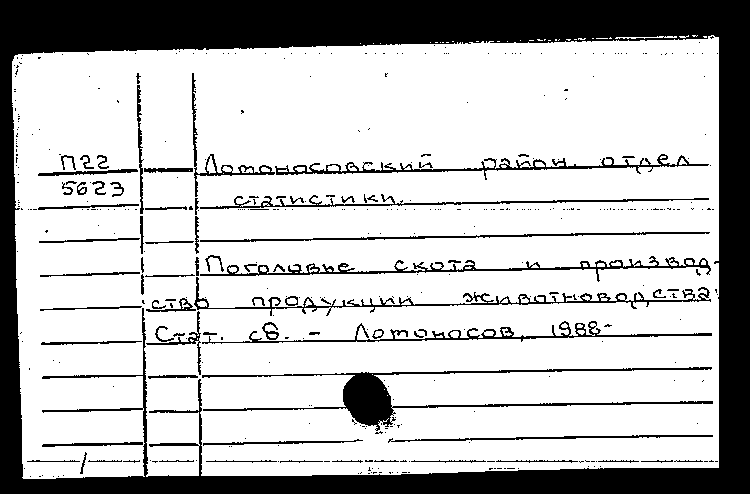 П22
5623
Ломоносовский район. отдел
статистики.
Поголовье скота и производ-
ство продукции животноводства:
Стат. сб. - Ломоносов, 1988-